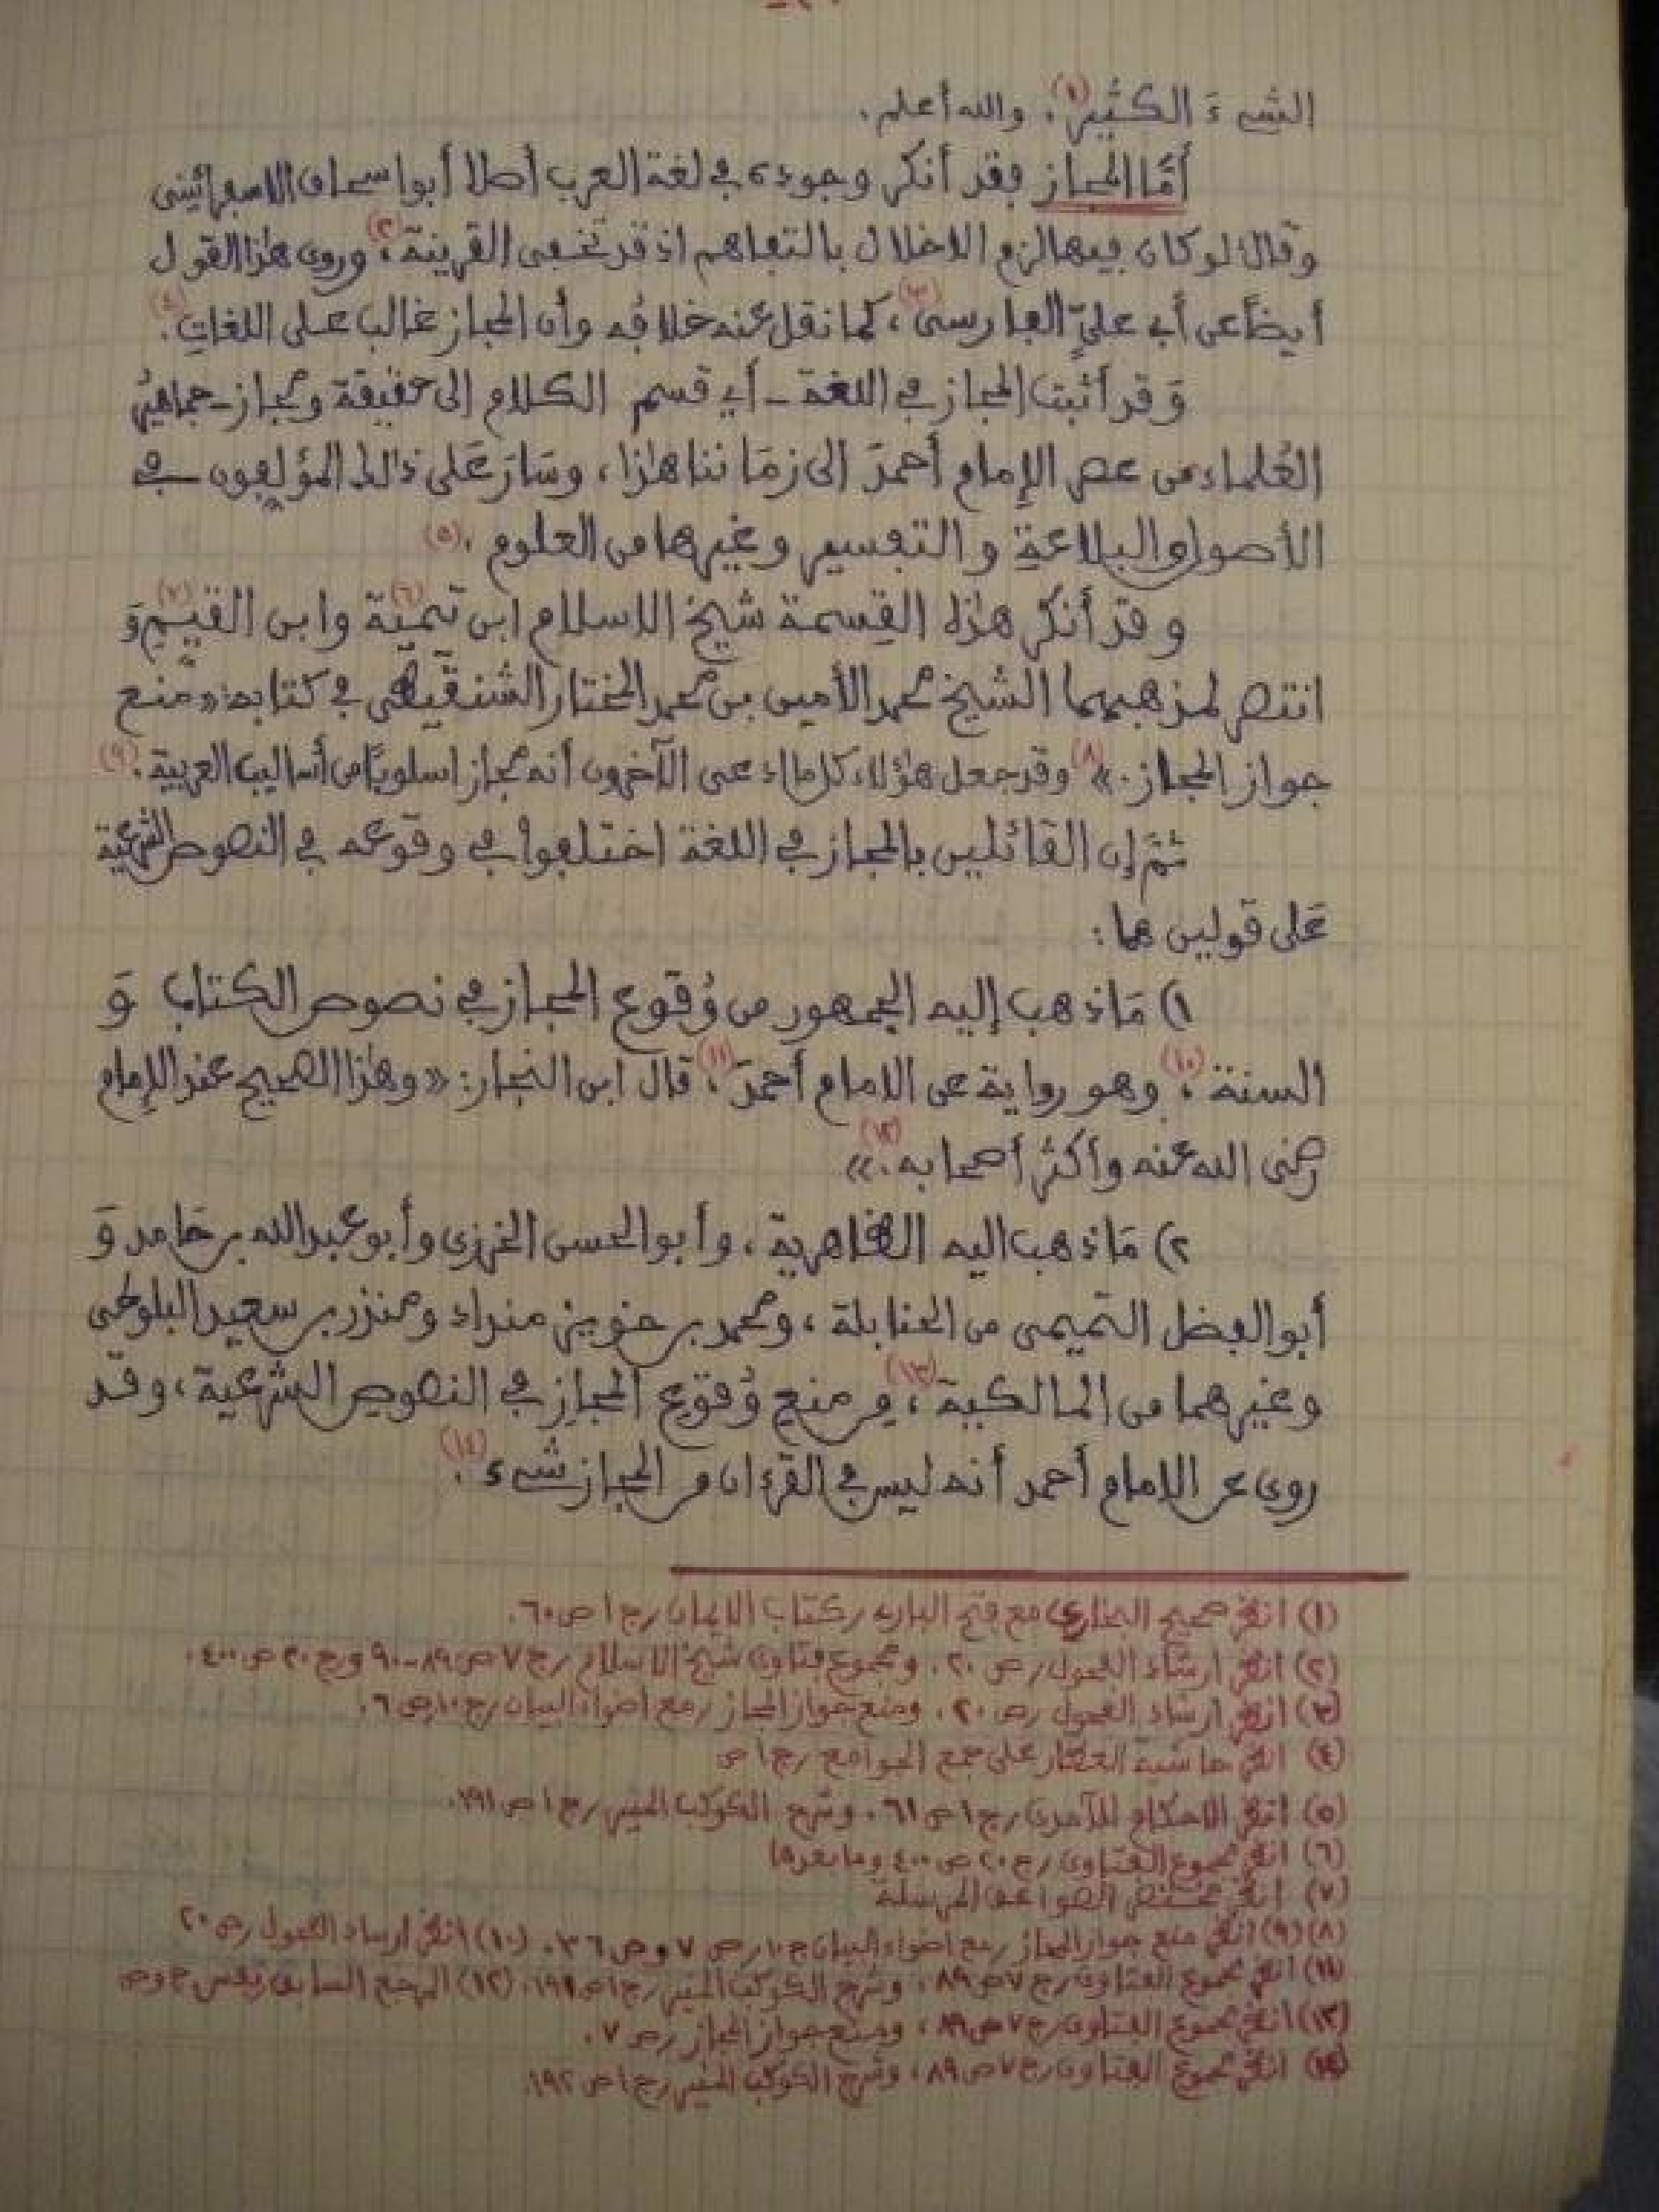 الشىءَ الكثير(١). والله أعلم.
أمَّا المجاز فقد أنكر وجوده في لغة العرب أصلا أبو اسحاق الاسفرائينى
وقال: لو كان فيها لزم الاخلال بالتفاهم اذ قد تخفى القرينة(٢)، وروى هذا القول
أيضًا عن أبي عليٍّ الفارسى(٣)، كما نقل عنه خلافُه وأن المجاز غالب على اللغاتِ(٤).
وَقد أثبت المجاز في اللغة - أي قسم الكلام الى حقيقة ومجاز - جماهيرُ
العُلماء من عصر الإمام أحمدَ الى زمَاننا هٰذا، وسَارَ عَلى ذٰلك المؤلفون في
الأصول والبلاغةِ والتفسير وغيرها من العلوم.(٥)
وقد أنكر هٰذه القِسمة شيخُ الاسلام ابن تيميّة(٦) وابن القيم(٧) وَ
انتصر لمذهبهما الشيخ محمد الأمين بن محمد المختار الشنقيطى في كتابه: «منع
جواز المجاز.»(٨) وقد جعل هؤلاء كل ما ادعى الآخرون أنه مجاز اسلوبًا من أساليب العربية.(٩)
ثمَّ إن القائلين بالمجاز في اللغة اختلفوا في وقوعه في النصوص الشرعية
عَلى قولين هما:
١) مَا ذهب إليه الجمهور من وُقوع المجاز في نصوص الكتاب وَ
السنة(١٠)، وهو رواية عن الامام أحمدَ(١١)، قال ابن النجار: «وهٰذا الصحيح عند الإمام
رضى الله عنه وأكثر أصحابه.»(١٢)
٢) مَا ذهب اليه الظاهرية، وأبو الحسن الخرزى وأبو عبد الله بن حَامد وَ
أبو الفضل التميمى من الحنابلة، ومحمد بن خويز منداد ومنذر بن سعيد البلوطى
وغيرهما من المالكية(١٣)، من منع وُقوع المجاز في النصوص الشرعية، وقد
روى عن الامام أحمد أنه ليس في القرءان من المجاز شىء(١٤).
(١) انظر صحيح البخارى مع فتح البارى / كتاب الايمان / ج ١ ص ٦٠.
(٢) انظر ارشاد الفحول / ص ٢٠. ومجموع فتاوى شيخ الاسلام / ج ٧ ص ٨٩-٩٠ و ج ٢٠ ص ٤٠٠.
(٣) انظر ارشاد الفحول / ص ٢٠. ومنع جواز المجاز / مع اضواء البيان / ج ١٠ / ص ٦.
(٤) انظر حاشية العطار على جمع الجوامع / ج ١ ص
(٥) انظر الاحكام للآمدى / ج ١ ص ٦١. وشرح الكوكب المنير / ج ١ ص ١٩١.
(٦) انظر مجموع الفتاوى / ج ٢٠ ص ٤٠٠ وما بعدها
(٧) انظر مختصر الصواعق المرسلة
(٨)(٩) انظر منع جواز المجاز / مع اضواء البيان ج ١٠ / ص ٧ و ص ٣٦. (١٠) انظر ارشاد الفحول / ص ٢٠
(١١) انظر مجموع الفتاوى / ج ٧ ص ٨٩، وشرح الكوكب المنير / ج ١ ص ١٩١. (١٢) المرجع السابق / نفس ج و ص
(١٣) انظر مجموع الفتاوى / ج ٧ ص ٨٩، ومنع جواز المجاز / ص ٧.
(١٤) انظر مجموع الفتاوى / ج ٧ ص ٨٩، وشرح الكوكب المنير / ج ١ ص ١٩٢.